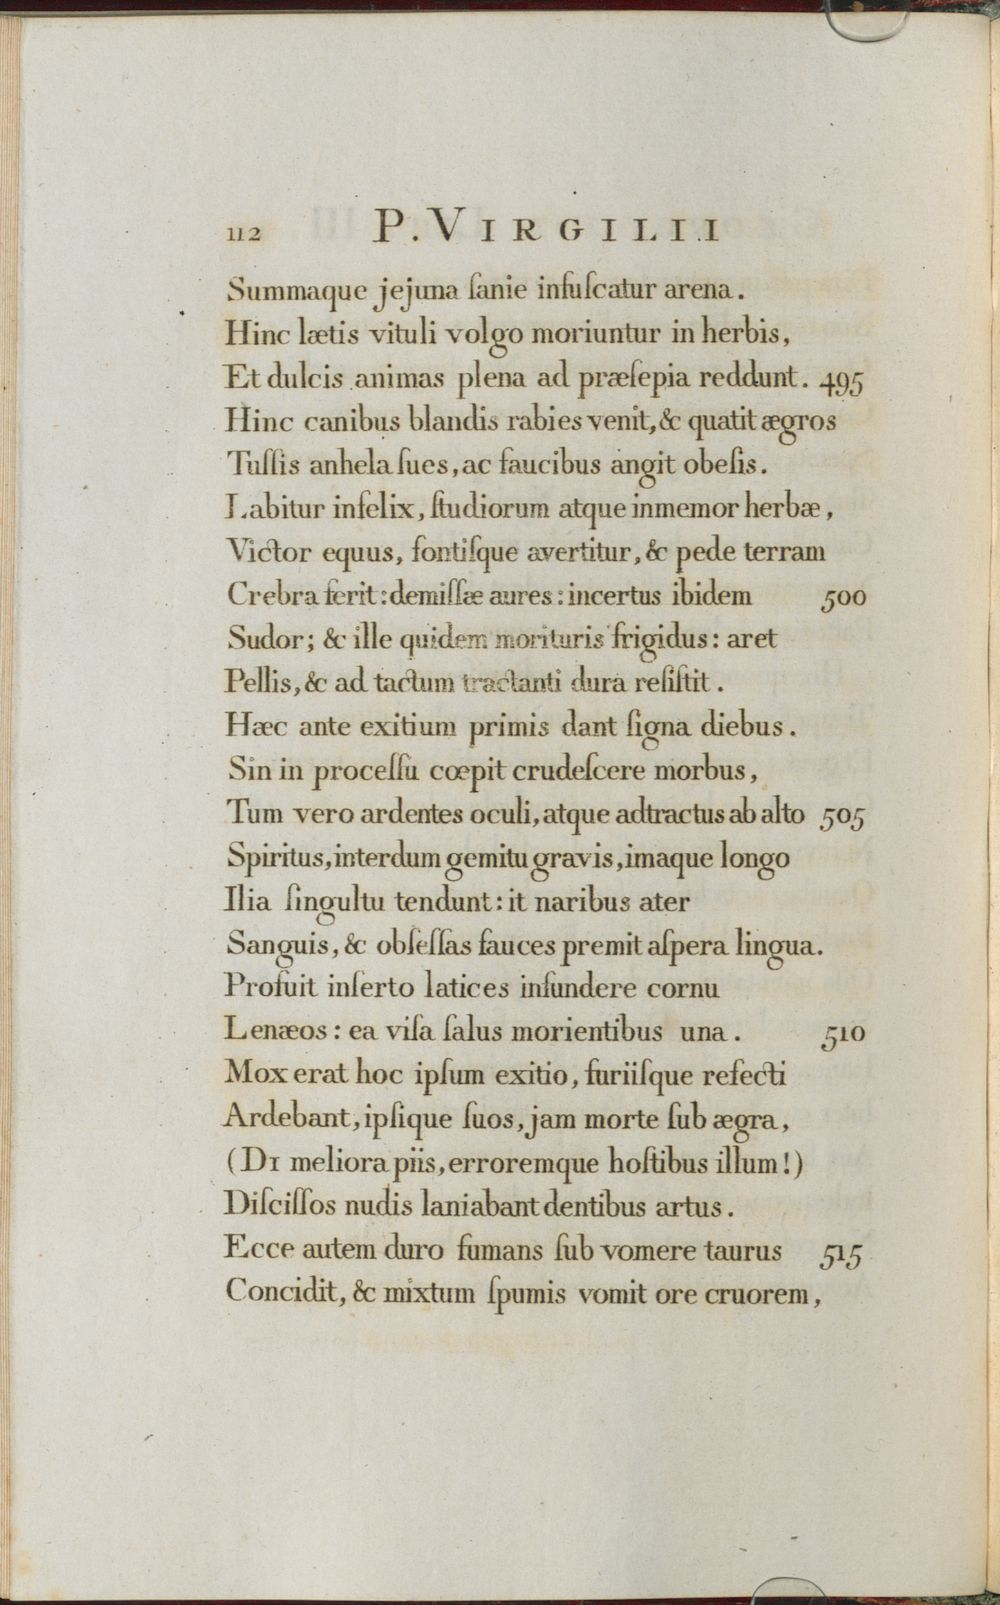 112 P. VIRGILII
Summaque jejuna ſanie infuſcatur arena.
Hinc lætis vituli volgo moriuntur in herbis,
Et dulcis animas plena ad præſepia reddunt. 495
Hinc canibus blandis rabies venit, & quatit ægros
Tuſſis anhela ſues, ac faucibus angit obeſis.
Labitur infelix, ſtudiorum atque inmemor herbæ,
Victor equus, fontiſque avertitur, & pede terram
Crebra ferit: demiſſæ aures: incertus ibidem 500
Sudor; & ille quidem morituris frigidus: aret
Pellis, & ad tactum tractanti dura reſiſtit.
Hæc ante exitium primis dant ſigna diebus.
Sin in proceſſu cœpit crudeſcere morbus,
Tum vero ardentes oculi, atque adtractus ab alto 505
Spiritus, interdum gemitu gravis, imaque longo
Ilia ſingultu tendunt: it naribus ater
Sanguis, & obſeſſas fauces premit aſpera lingua.
Profuit inſerto latices infundere cornu
Lenæos: ea viſa ſalus morientibus una. 510
Mox erat hoc ipſum exitio, furiiſque refecti
Ardebant, ipſique ſuos, jam morte ſub ægra,
(DI meliora piis, erroremque hoſtibus illum!)
Diſciſſos nudis laniabant dentibus artus.
Ecce autem duro fumans ſub vomere taurus 515
Concidit, & mixtum ſpumis vomit ore cruorem,